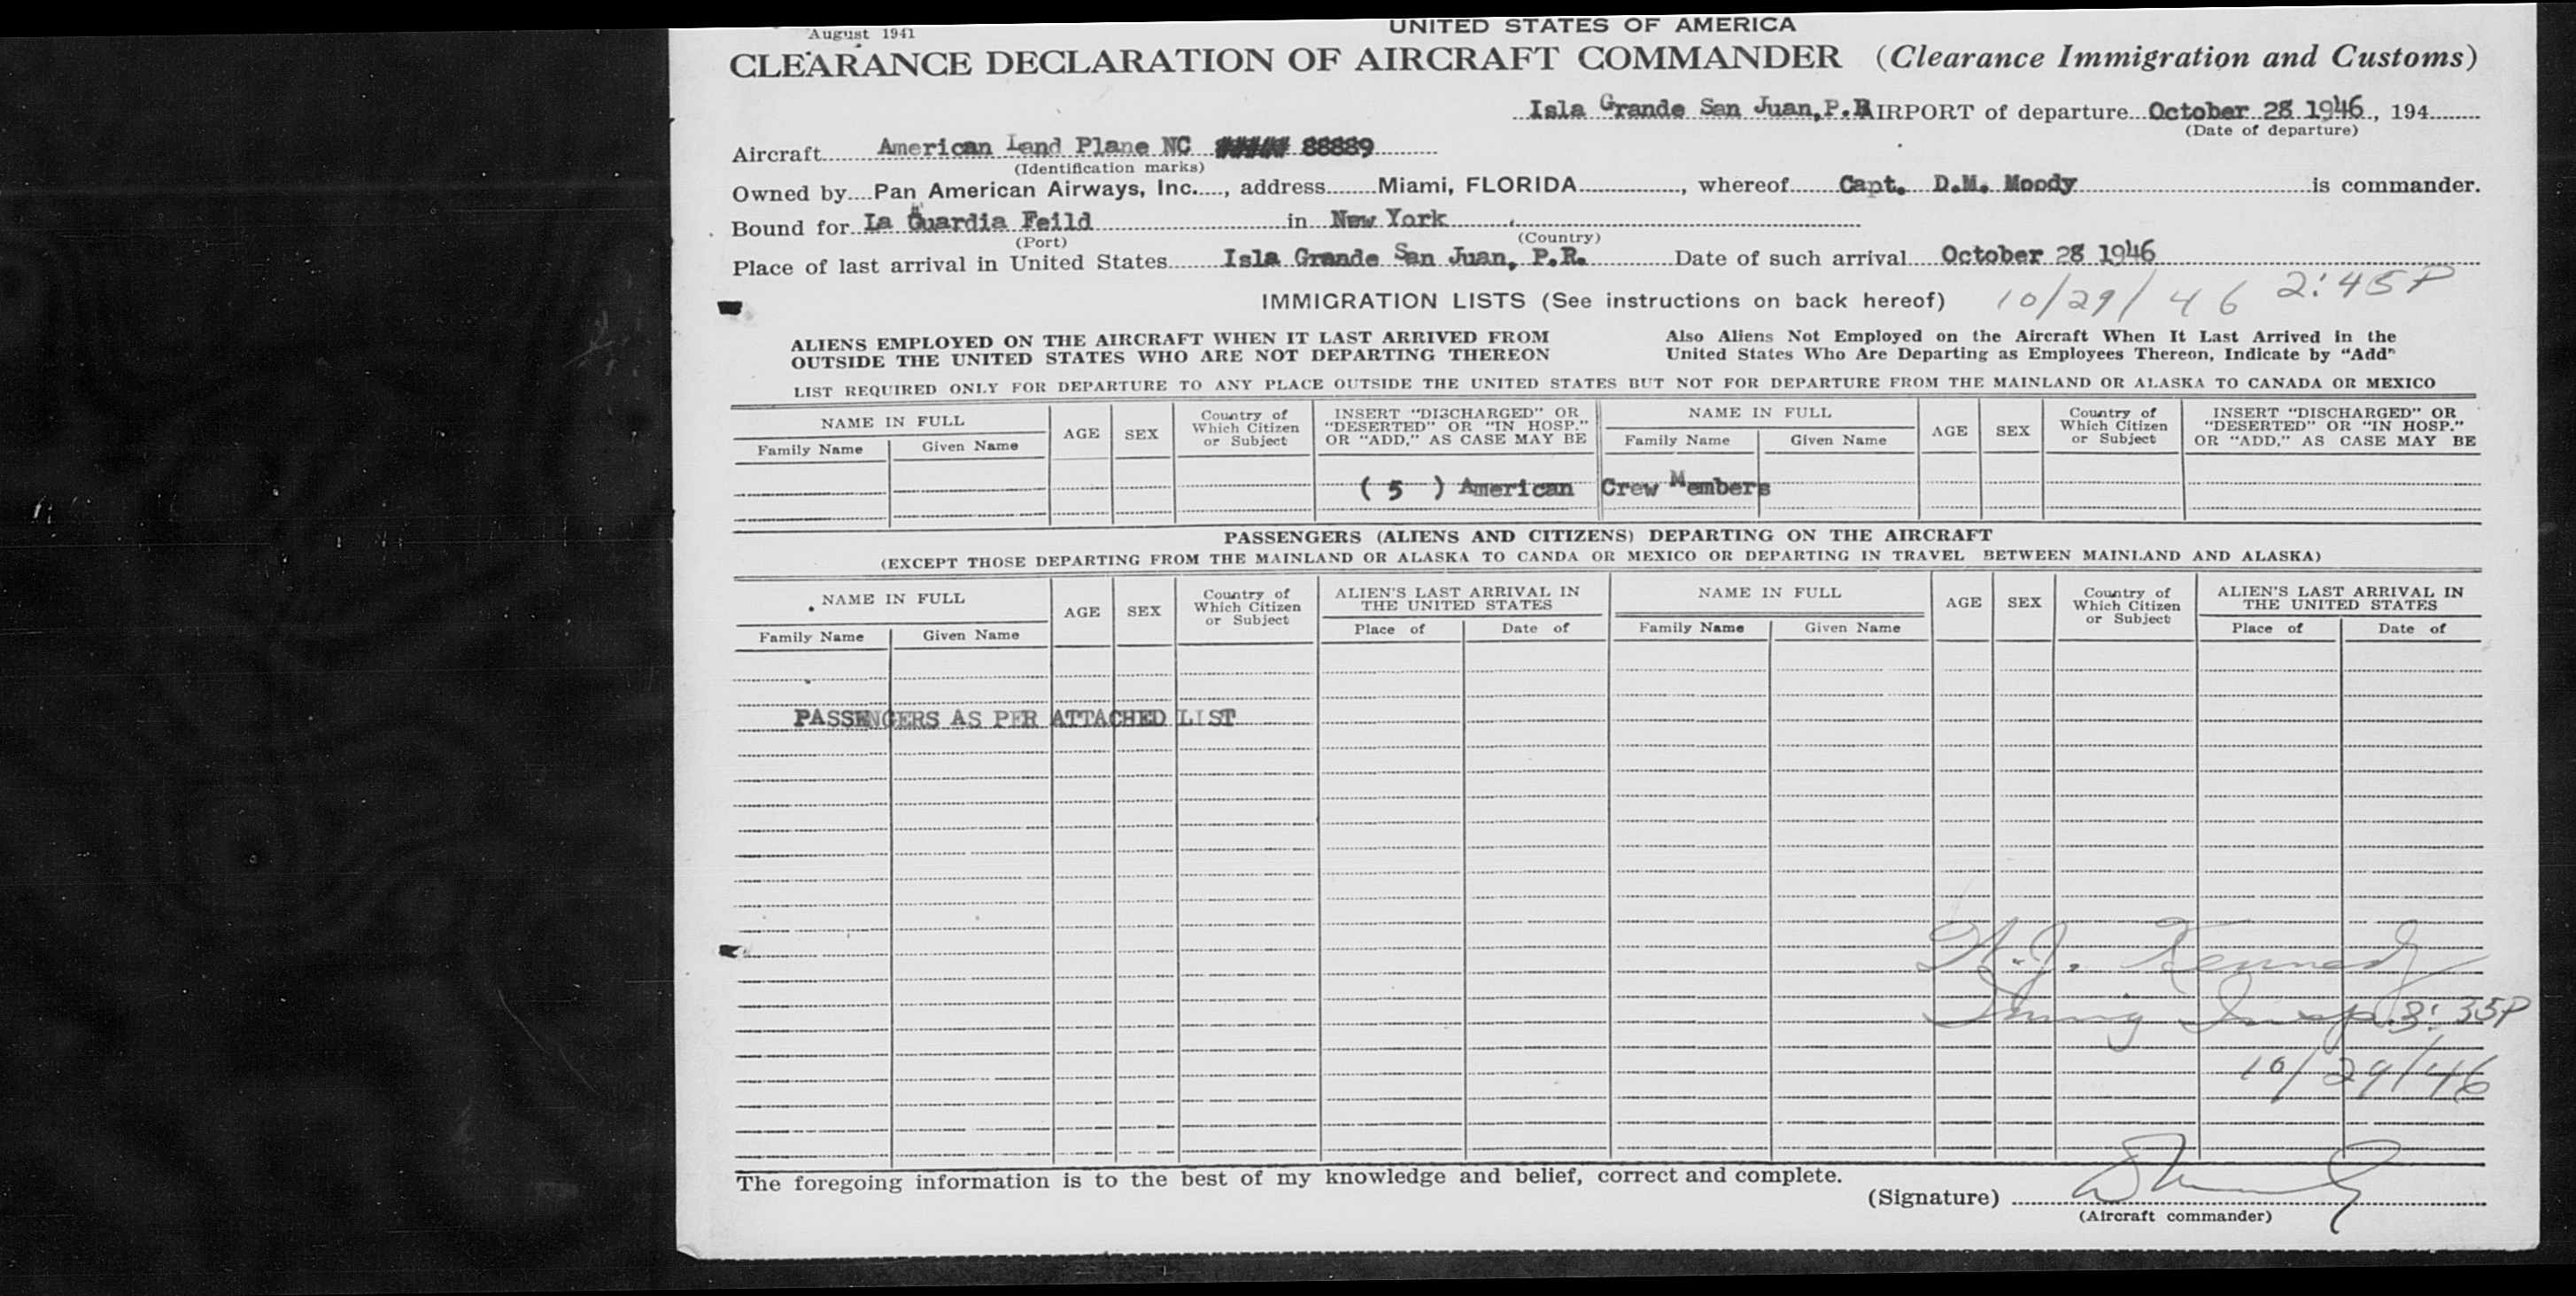 UNITED STATES OF AMERICA
August 1941
CLEARANCE DECLARATION OF AIRCRAFT COMMANDER (Clearance Immigration and Customs)
Isla Grande San Juan, P.R AIRPORT of departure October 28 1946, 194
(Date of departure)
Aircraft American Land Plane NC ##### 88889
(Identification marks)
Owned by Pan American Airways, Inc., address Miami, FLORIDA, whereof Capt. D.M. Moody is commander.
Bound for La Guardia Feild in New York
(Port) (Country)
Place of last arrival in United States Isla Grande San Juan, P.R. Date of such arrival October 28 1946
IMMIGRATION LISTS (See instructions on back hereof) 10/29/46 2:45P
ALIENS EMPLOYED ON THE AIRCRAFT WHEN IT LAST ARRIVED FROM
OUTSIDE THE UNITED STATES WHO ARE NOT DEPARTING THEREON
Also Aliens Not Employed on the Aircraft When It Last Arrived in the
United States Who Are Departing as Employees Thereon, Indicate by "Add"
LIST REQUIRED ONLY FOR DEPARTURE TO ANY PLACE OUTSIDE THE UNITED STATES BUT NOT FOR DEPARTURE FROM THE MAINLAND OR ALASKA TO CANADA OR MEXICO
NAME IN FULL
Family Name Given Name
AGE
SEX
Country of
Which Citizen
or Subject
INSERT "DISCHARGED" OR
"DESERTED" OR "IN HOSP."
OR "ADD," AS CASE MAY BE
NAME IN FULL
Family Name Given Name
AGE
SEX
Country of
Which Citizen
or Subject
INSERT "DISCHARGED" OR
"DESERTED" OR "IN HOSP."
OR "ADD," AS CASE MAY BE
( 5 ) American Crew Members
PASSENGERS (ALIENS AND CITIZENS) DEPARTING ON THE AIRCRAFT
(EXCEPT THOSE DEPARTING FROM THE MAINLAND OR ALASKA TO CANDA OR MEXICO OR DEPARTING IN TRAVEL BETWEEN MAINLAND AND ALASKA)
NAME IN FULL
Family Name Given Name
AGE
SEX
Country of
Which Citizen
or Subject
ALIEN'S LAST ARRIVAL IN
THE UNITED STATES
Place of Date of
NAME IN FULL
Family Name Given Name
AGE
SEX
Country of
Which Citizen
or Subject
ALIEN'S LAST ARRIVAL IN
THE UNITED STATES
Place of Date of
PASSENGERS AS PER ATTACHED LIST
Kennedy
Immig Insp. 3:35P
10/29/46
The foregoing information is to the best of my knowledge and belief, correct and complete.
(Signature)
(Aircraft commander)